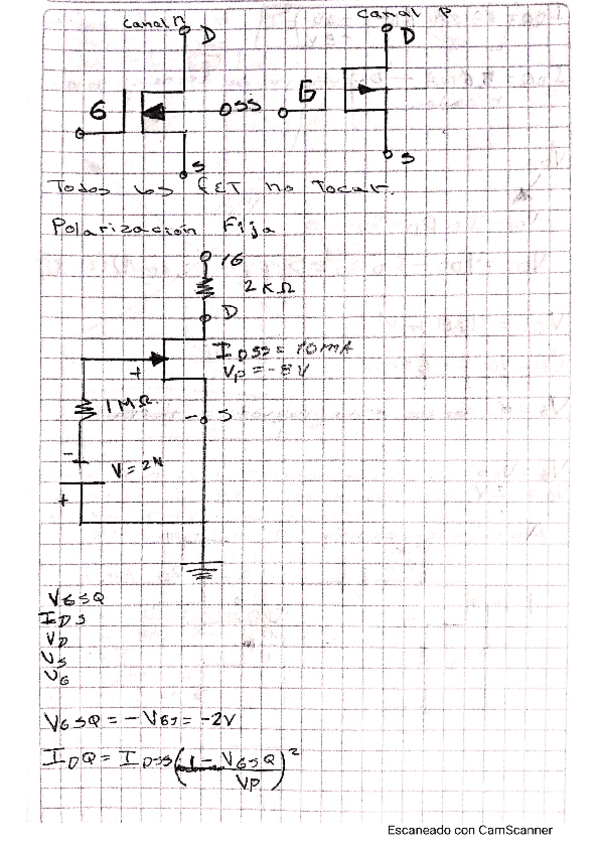 canal n
canal P
D
D
G
OSS
G
S
S
Todos los FET no Tocar.
Polarización Fija
16
2KΩ
D
IDSS = 10mA
VP = -8V
+
1MΩ
- S
-
V = 2V
+
VGSQ
IDS
VD
VS
VG
VGSQ = - VGS = -2V
IDQ = IDSS(1 - VGSQ/VP)²
Escaneado con CamScanner